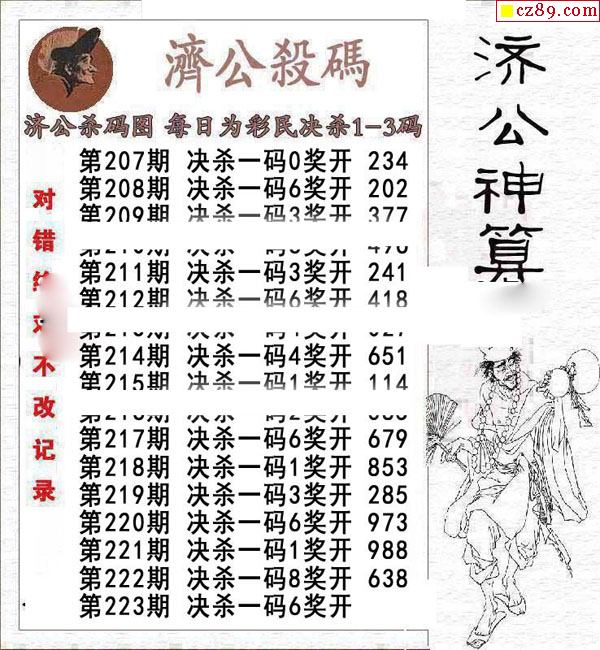 cz89.com
濟公殺碼
济公杀码图 每日为彩民决杀1-3码
第207期 决杀一码0奖开 234
第208期 决杀一码6奖开 202
第209期 决杀一码3奖开 377
第211期 决杀一码3奖开 241
第212期 决杀一码6奖开 418
第214期 决杀一码4奖开 651
第215期 决杀一码1奖开 114
第217期 决杀一码6奖开 679
第218期 决杀一码1奖开 853
第219期 决杀一码3奖开 285
第220期 决杀一码6奖开 973
第221期 决杀一码1奖开 988
第222期 决杀一码8奖开 638
第223期 决杀一码6奖开
对错
不改记录
济公神算